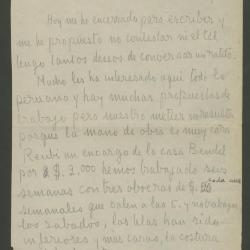 Hoy me he encerrado para escribir y
me he propuesto no contestar ni el tel
tengo tantos deseos de conversar un ratito.
Mucho les ha interesado aquí todo lo
peruano y hay muchas propuestas de
trabajo pero nuestro metier
porque la mano de obra es muy cara
Recibi un encargo de la casa Bendel
por $ 2,000 hemos trabajado seis
semanas con tres obreras de $ cada una
semanales que salen a las 5. y no trabajan
los sabados, las telas han sido
inferiores y mas caras, la costura